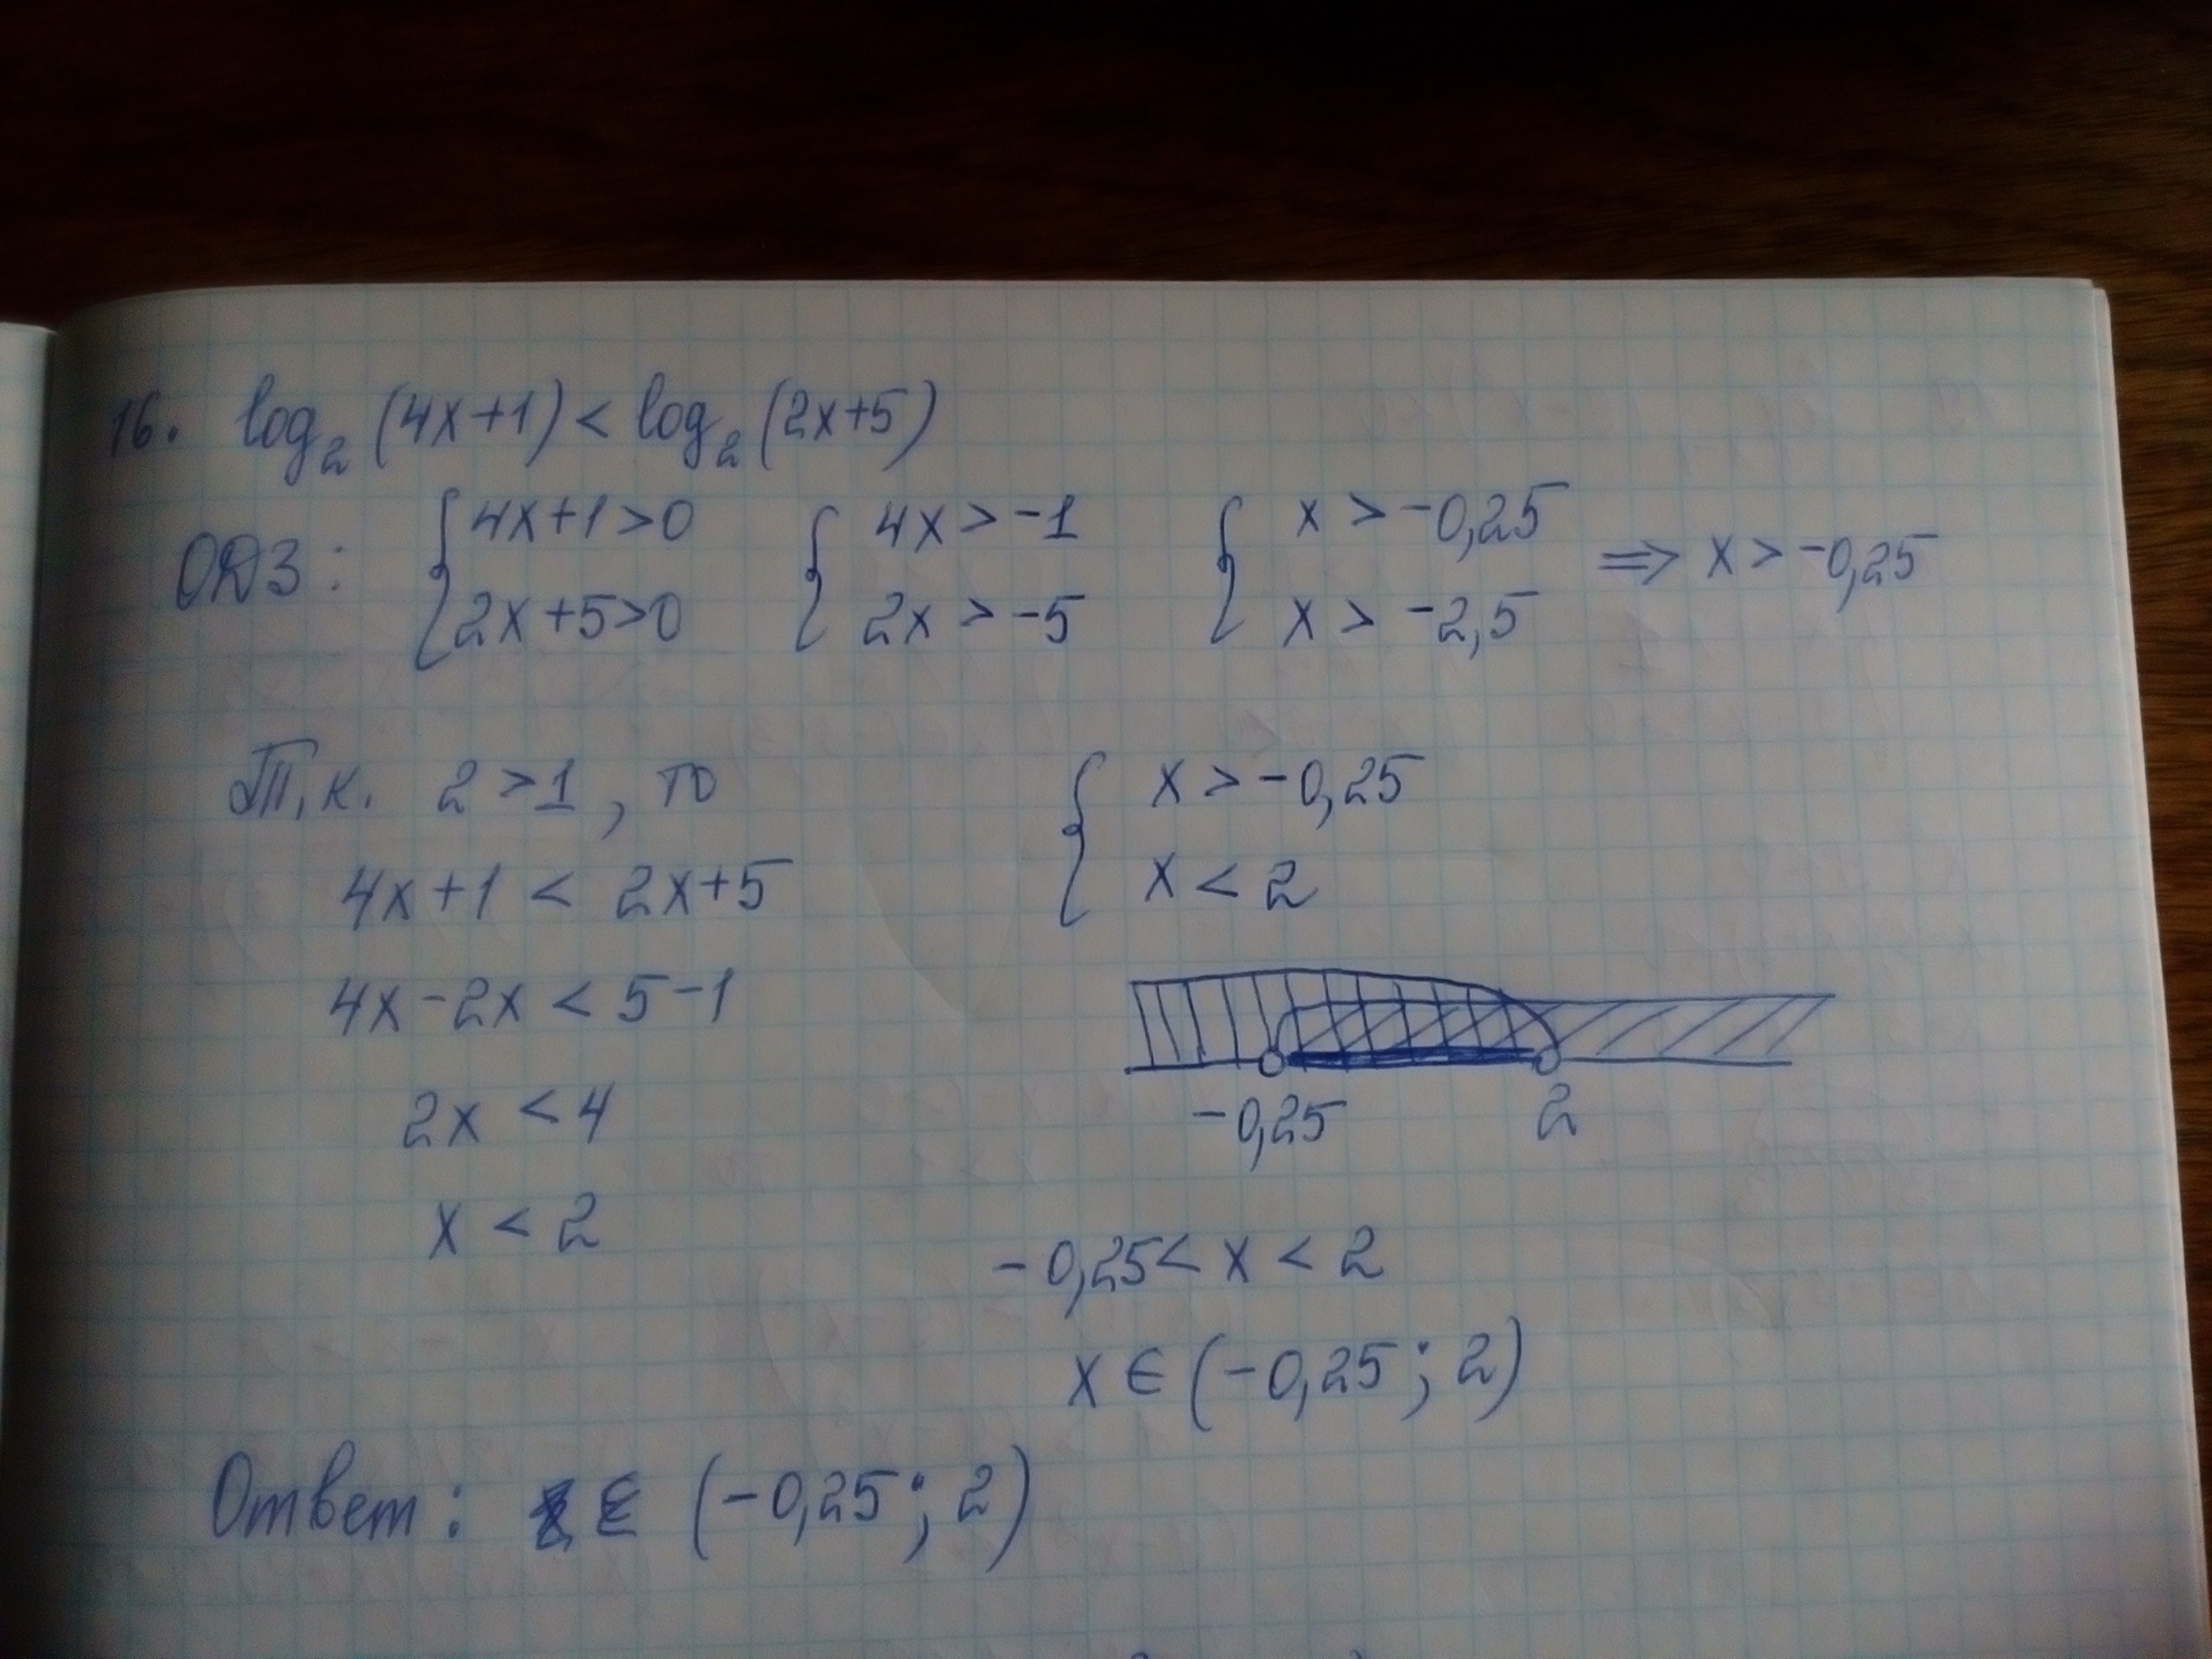 16. log₂ (4x+1) < log₂ (2x+5)
ОДЗ: { 4x+1>0 { 4x > -1 { x > -0,25 ⇒ x > -0,25
2x+5>0 2x > -5 x > -2,5
Т.к. 2 > 1, то
4x+1 < 2x+5
4x-2x < 5-1
2x < 4
x < 2
{ x > -0,25
x < 2
-0,25 2
-0,25 < x < 2
x ∈ (-0,25; 2)
Ответ: x ∈ (-0,25; 2)